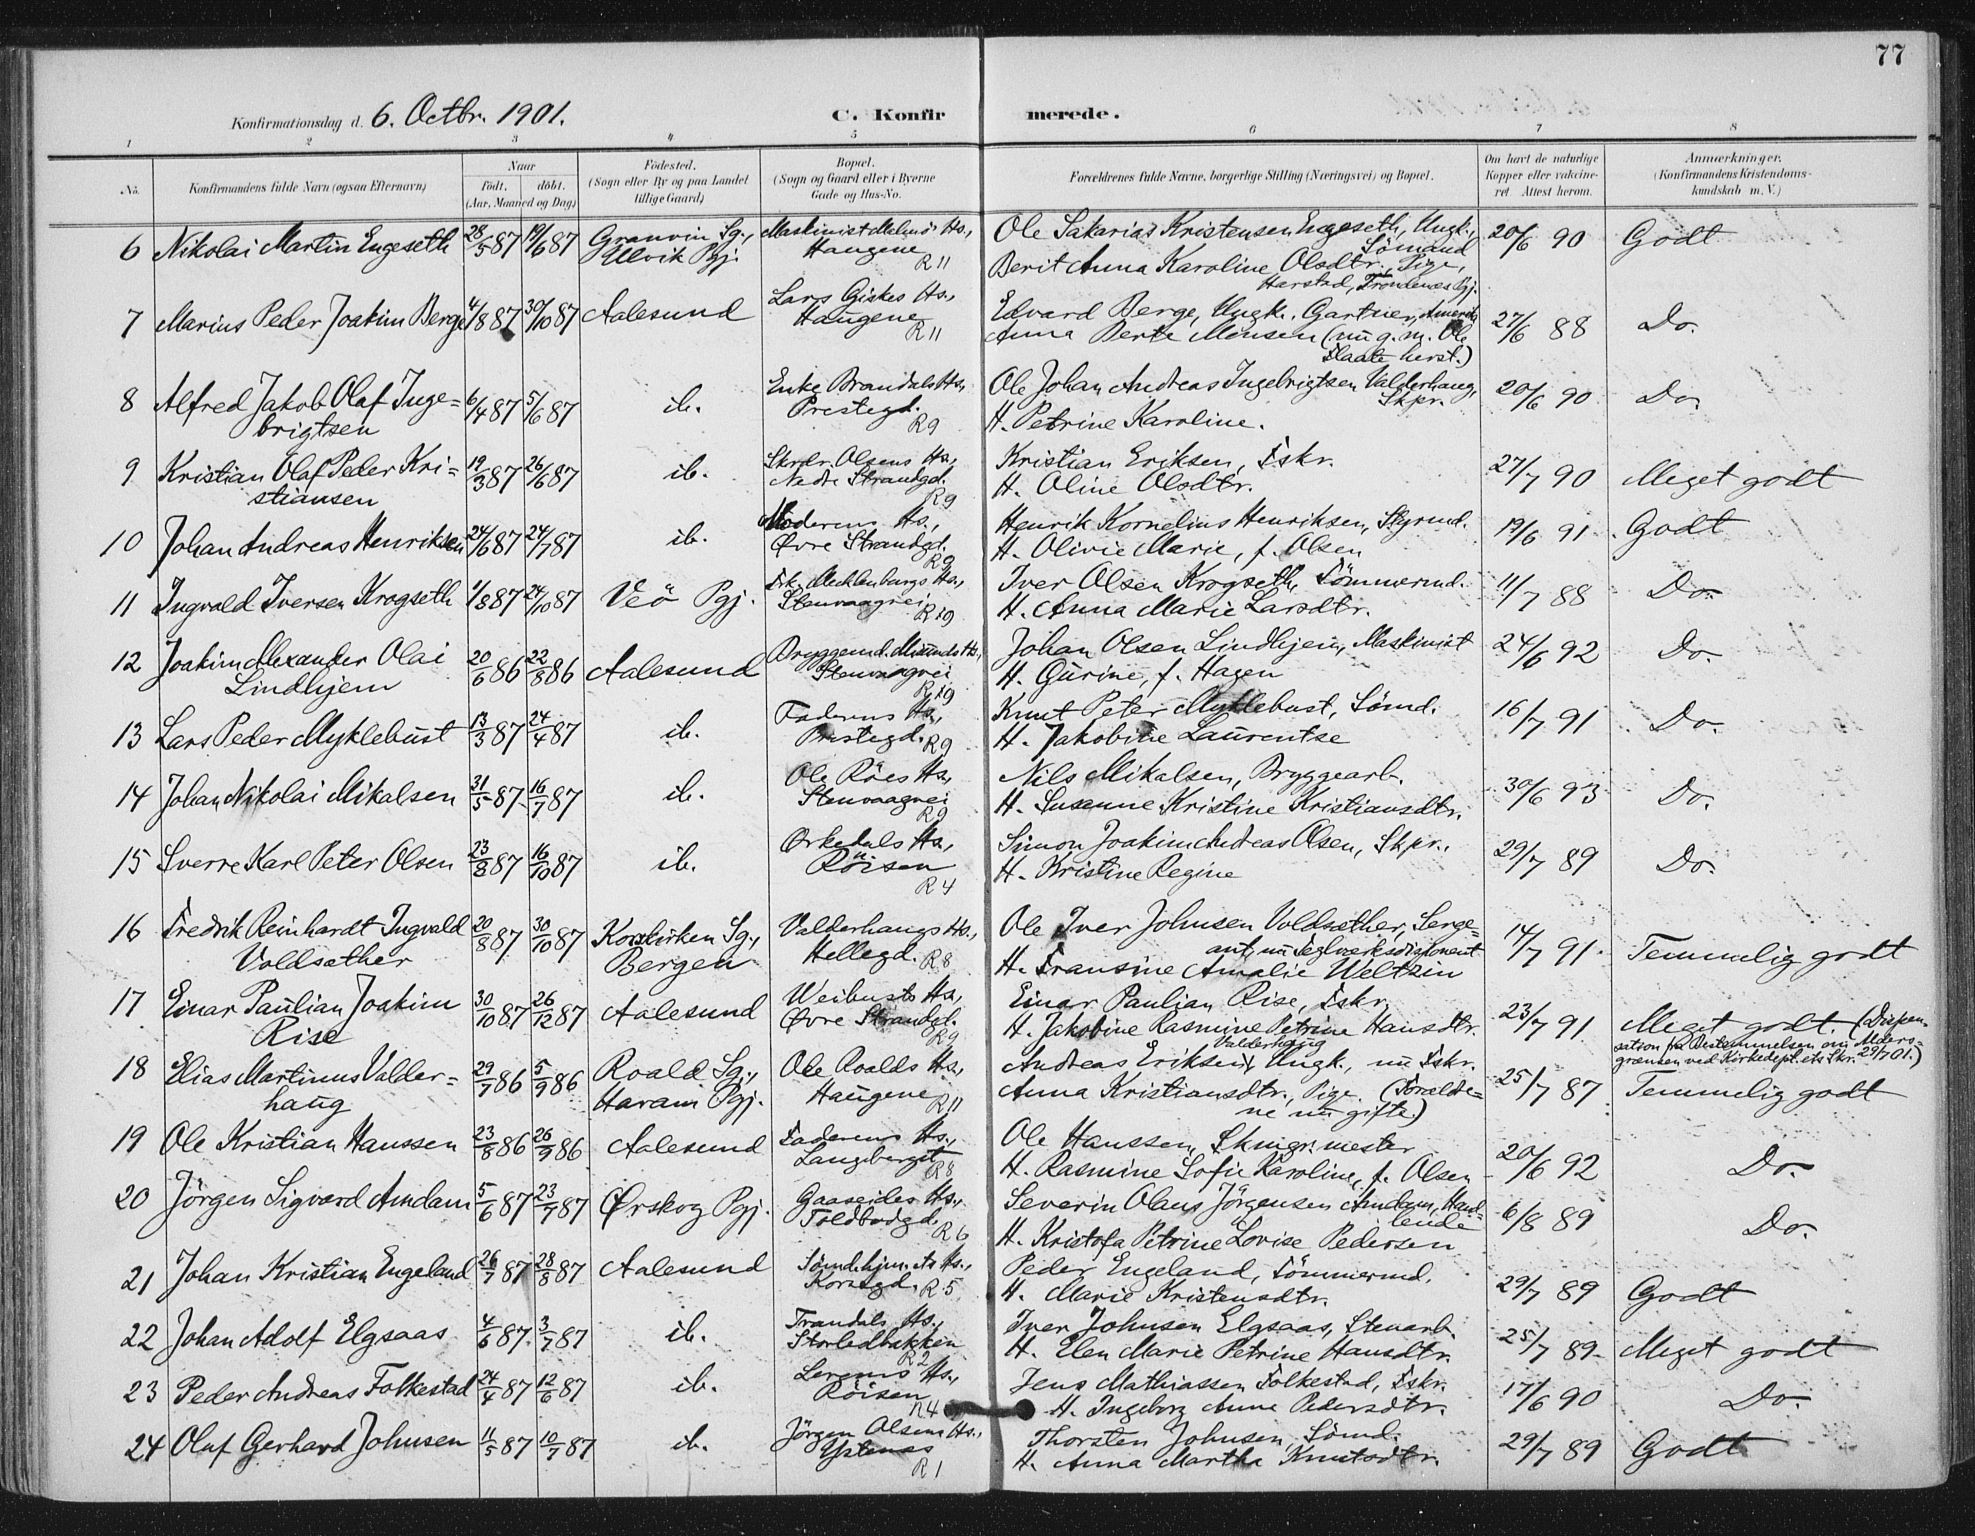 77
Konfirmationsdag d. 6. Octbr. 1901.
C. Konfir merede.
1 2 3 4 5 6 7 8
No.
Konfirmandens fulde Navn (ogsaa Efternavn)
Naar
Födt. döbt.
(Aar, Maaned og Dag)
Födested.
(Sogn eller By og paa Landet
tillige Gaard)
Bopæl.
(Sogn og Gaard eller i Byerne
Gade og Hus-No.
Forældrenes fulde Navne, borgerlige Stilling (Næringsvei) og Bopæl.
Om havt de naturlige
Kopper eller vakcine-
ret Attest herom.
Anmærkninger.
(Konfirmandens Kristendoms-
kundskab m. V.)
6 Nikolai Martin Engeseth 28/5 87 19/6 87 Granvin Sg., Maskinist Malmös Hs., Ole Sakarias Kristensen Engeseth, Ungk., 20/6 90 Godt
Ulvik Pgj. Haugene R 11 Sömand
Berit Anna Karoline Olsdtr., Pige,
Harstad, Trondenes Pgj.
7 Marius Peder Joakim Berge 4/8 87 30/10 87 Aalesund Lars Giskes Hs., Edvard Berge, Ungk. Gartner, Amerika 27/6 88 Do.
Haugene R 11 Anna Berte Monsen (nu g. m. Ole
Flaate herst.)
8 Alfred Jakob Olaf Inge= 6/4 87 5/6 87 ib. Enke Brandals Hs., Ole Johan Andreas Ingebrigtsen Valderhaug, 20/6 90 Do.
brigtsen Prestegd. R 9 Skpr.
H. Petrine Karoline.
9 Kristian Olaf Peder Kri= 19/3 87 26/6 87 ib. Skrdr. Olsens Hs., Kristian Eriksen, Fskr. 27/7 90 Meget godt
stiansen Nedre Strandgd. R 9 H. Oline Olsdtr.
10 Johan Andreas Henriksen 24/6 87 24/7 87 ib. Moderens Hs., Henrik Kornelius Henriksen, Styrmd. 19/6 91 Godt
Øvre Strandgd. R 9 H. Olivie Marie, f. Olsen
11 Ingvald Iversen Krogseth 1/8 87 24/10 87 Veö Pgj. Frk. Mecklenburgs Hs., Iver Olsen Krogseth, Tömmermd. 11/7 88 Do.
Stenvaagvei R 19 H. Anna Marie Larsdtr.
12 Joakim Alexander Olai 20/6 86 22/8 86 Aalesund Bryggemd. Hs., Johan Olsen Lindhjem, Maskinist 24/6 92 Do.
Lindhjem Stenvaagvei R 19 H. Gurine, f. Hagen
13 Lars Peder Myklebust 13/3 87 24/4 87 ib. Faderens Hs., Knut Peter Myklebust, Sömd. 16/7 91 Do.
Prestegd. R 9 H. Jakobine Laurentse
14 Johan Nikolai Mikalsen 31/5 87 16/7 87 ib. Ole Röes Hs., Nils Mikalsen, Bryggearb. 30/6 93 Do.
Stenvaagvei R 9 H. Susanne Kristine Kristiansdtr.
15 Sverre Karl Peter Olsen 23/8 87 16/10 87 ib. Orkedals Hs., Simon Joakim Andreas Olsen, Skpr., 29/7 89 Do.
Röisen R 4 H. Kristine Regine
16 Fredrik Reinhardt Ingvald 20/8 87 30/10 87 Korskirken Sg., Valderhaugs Hs., Ole Iver Johnsen Voldsæther, Serge= 14/7 91. Temmelig godt
Voldsæther Bergen Hellegd. R 8 ant, nu Teglverksdisponent
H. Fransine Amalie Weltzin
17 Einar Paulian Joakim 30/10 87 26/12 87 Aalesund Weibusts Hs., Einar Paulian Rise, Fskr. 23/7 91 Meget godt. (Dispen=
Rise Øvre Strandgd. R 9 H. Jakobine Rasmine Petrine Hansdtr. sation fra Bestemmelsen om Alders=
grænsen ved Kirkedept.ets Skr. 29/7 01.)
18 Elias Martinus Valder= 29/7 86 5/9 86 Roald Sg., Ole Roalds Hs., Andreas Eriksen Valderhaug, Ungk., nu Fskr. 25/7 87 Temmelig godt
haug Haram Pgj. Haugene R 11 Anna Kristiansdtr., Pige. (Forældre=
ne nu gifte)
19 Ole Kristian Hanssen 23/8 86 26/9 86 Aalesund Faderens Hs., Ole Hanssen, Skmgr.mester 20/6 92 Do.
Langberget R 8 H. Rasmine Sofie Karoline, f. Olsen
20 Jörgen Sigvard Amdam 5/6 87 23/7 87 Ørskog Pgj. Gaaseides Hs., Severin Olaus Jörgensen Amdam, Hand= 6/8 89 Do.
Toldbodgd. R 6 lende
H. Kristofa Petrine Lovise Pedersen
21 Johan Kristian Engeland 26/7 87 28/8 87 Aalesund Sömdshjm.ets Hs., Peder Engeland, Tömmermd. 29/7 89 Godt
Korsgd. R 5 H. Marie Kristensdtr.
22 Johan Adolf Elgsaas 4/6 87 3/7 87 ib. Trandals Hs., Iver Johnsen Elgsaas, Stenarb. 25/7 89 Meget godt
Storledbakken R 2 H. Elen Marie Petrine Hansdtr.
23 Peder Andreas Folkestad 24/4 87 12/6 87 ib. Hs., Jens Mathiassen Folkestad, Fskr. 17/6 90 Do.
Röisen R 4 H. Ingeborg Anne Pedersdtr.
24 Oluf Gerhard Johnsen 11/5 87 10/7 87 ib. Jörgen Olsens Hs., Thorsten Johnsen, Sömd. 29/7 89 Godt
Ystenæs R 1 H. Anna Martha Knutsdtr.